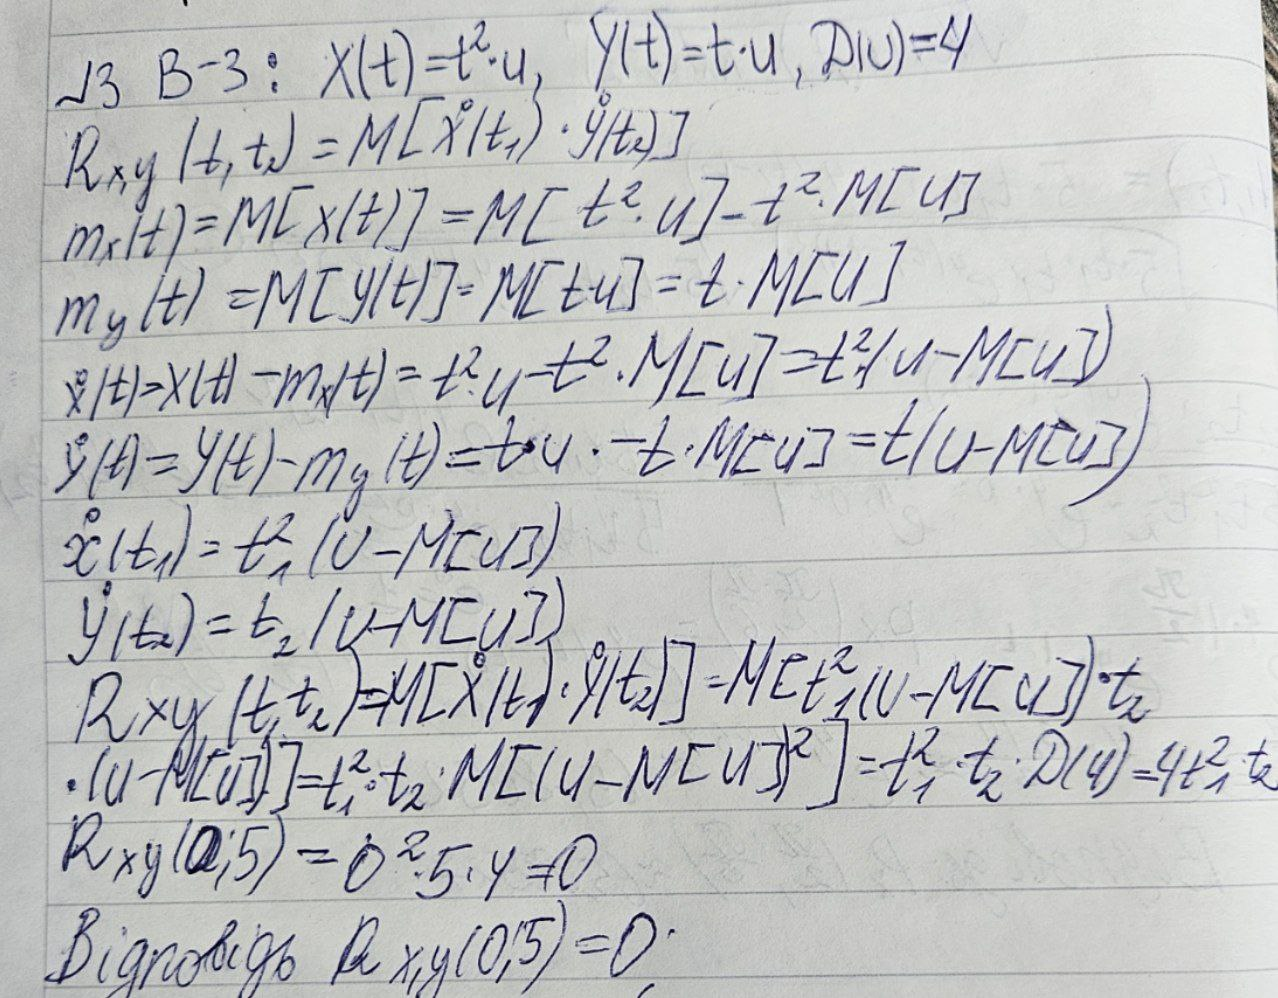 √3 В-3: X(t)=t²·u, Y(t)=t·u, D(U)=4
Rx,y(t,t₂)=M[X̊(t₁)·Y̊(t₂)]
mₓ(t)=M[X(t)]=M[t²·u]-t²·M[U]
m_y(t)=M[Y(t)]=M[t·u]=t·M[U]
x̊(t)=X(t)-mₓ(t)=t²·u-t²·M[U]=t²(u-M[U])
ẙ(t)=Y(t)-m_y(t)=t·u·-t·M[U]=t(U-M[U])
x̊(t₁)=t₁²(U-M[U])
ẙ(t₂)=t₂(U-M[U])
Rxy(t,t₂)=M[X̊(t₁)·Y̊(t₂)]=M[t₁²(U-M[U])·t₂
·(U-M[U])]=t₁²·t₂·M[(U-M[U])²]=t₁²·t₂·D(U)=4t₁²·t₂
Rxy(0;5)=0²·5·4=0
Відповідь Rx,y(0;5)=0.